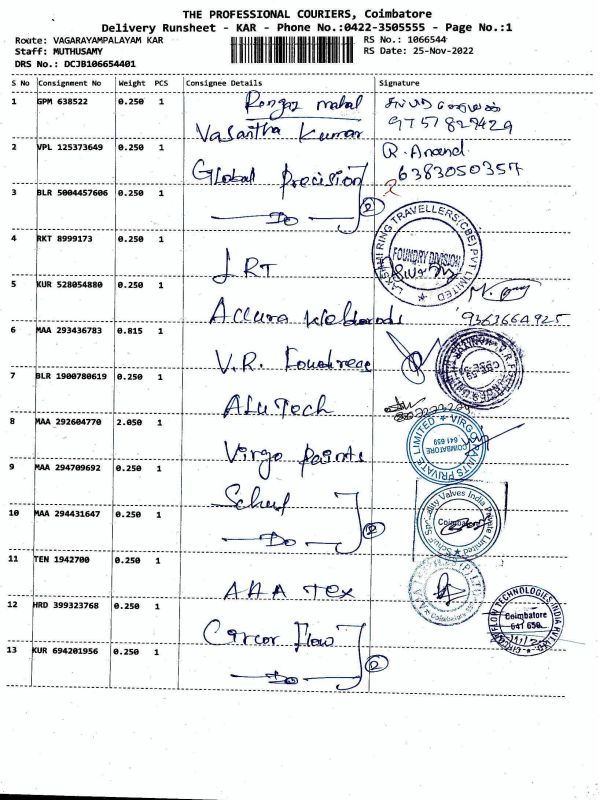 THE PROFESSIONAL COURIERS, Coimbatore
Delivery Runsheet - KAR - Phone No.:0422-3505555 - Page No.:1
Route: VAGARAYAMPALAYAM KAR
RS No.: 1066544
Staff: MUTHUSAMY
RS Date: 25-Nov-2022
DRS No.: DCJB106654401
S No Consignment No Weight PCS Consignee Details Signature
1 GPM 638522 0.250 1 Rangaz mahal
9757827429
Vasantha Kumar
2 VPL 125373649 0.250 1
R. Anand
6383050357
Global Precision
3 BLR 5004457606 0.250 1
Do 2
4 RKT 8999173 0.250 1
LRT
LAKSHMI RING TRAVELLERS(CBE) PVT LIMITED
FOUNDRY DIVISION
5 KUR 528054880 0.250 1
Accura Weldrods
9363664925
6 MAA 293436783 0.815 1
V.R. Foundress
7 BLR 1900780619 0.250 1
AluTech
8 MAA 292604770 2.050 1
Virgo Paints
VIRGO PAINTS PRIVATE LIMITED
COIMBATORE
641 659
9 MAA 294709692 0.250 1
Schuf
Schuf Speciality Valves India Private Limited
Coimbatore
10 MAA 294431647 0.250 1
Do 2
11 TEN 1942700 0.250 1
AAA Tex
12 HRD 399323768 0.250 1
Circor Flow
CIRCOR FLOW TECHNOLOGIES INDIA PVT LTD
Coimbatore
641 659
13 KUR 694201956 0.250 1
Do 2